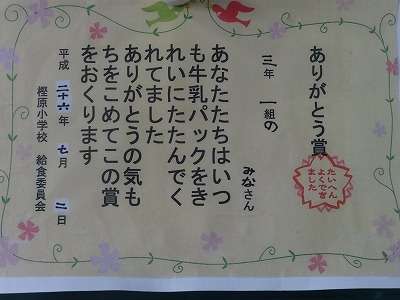 ありがとう賞
たいへん
よくでき
ました
三年 一組の
みなさん
あなたたちはいつ
も牛乳パックをき
れいにたたんでく
れてました
ありがとうの気も
ちをこめてこの賞
をおくります
平成 二十六年 七月 二日
樫原小学校 給食委員会